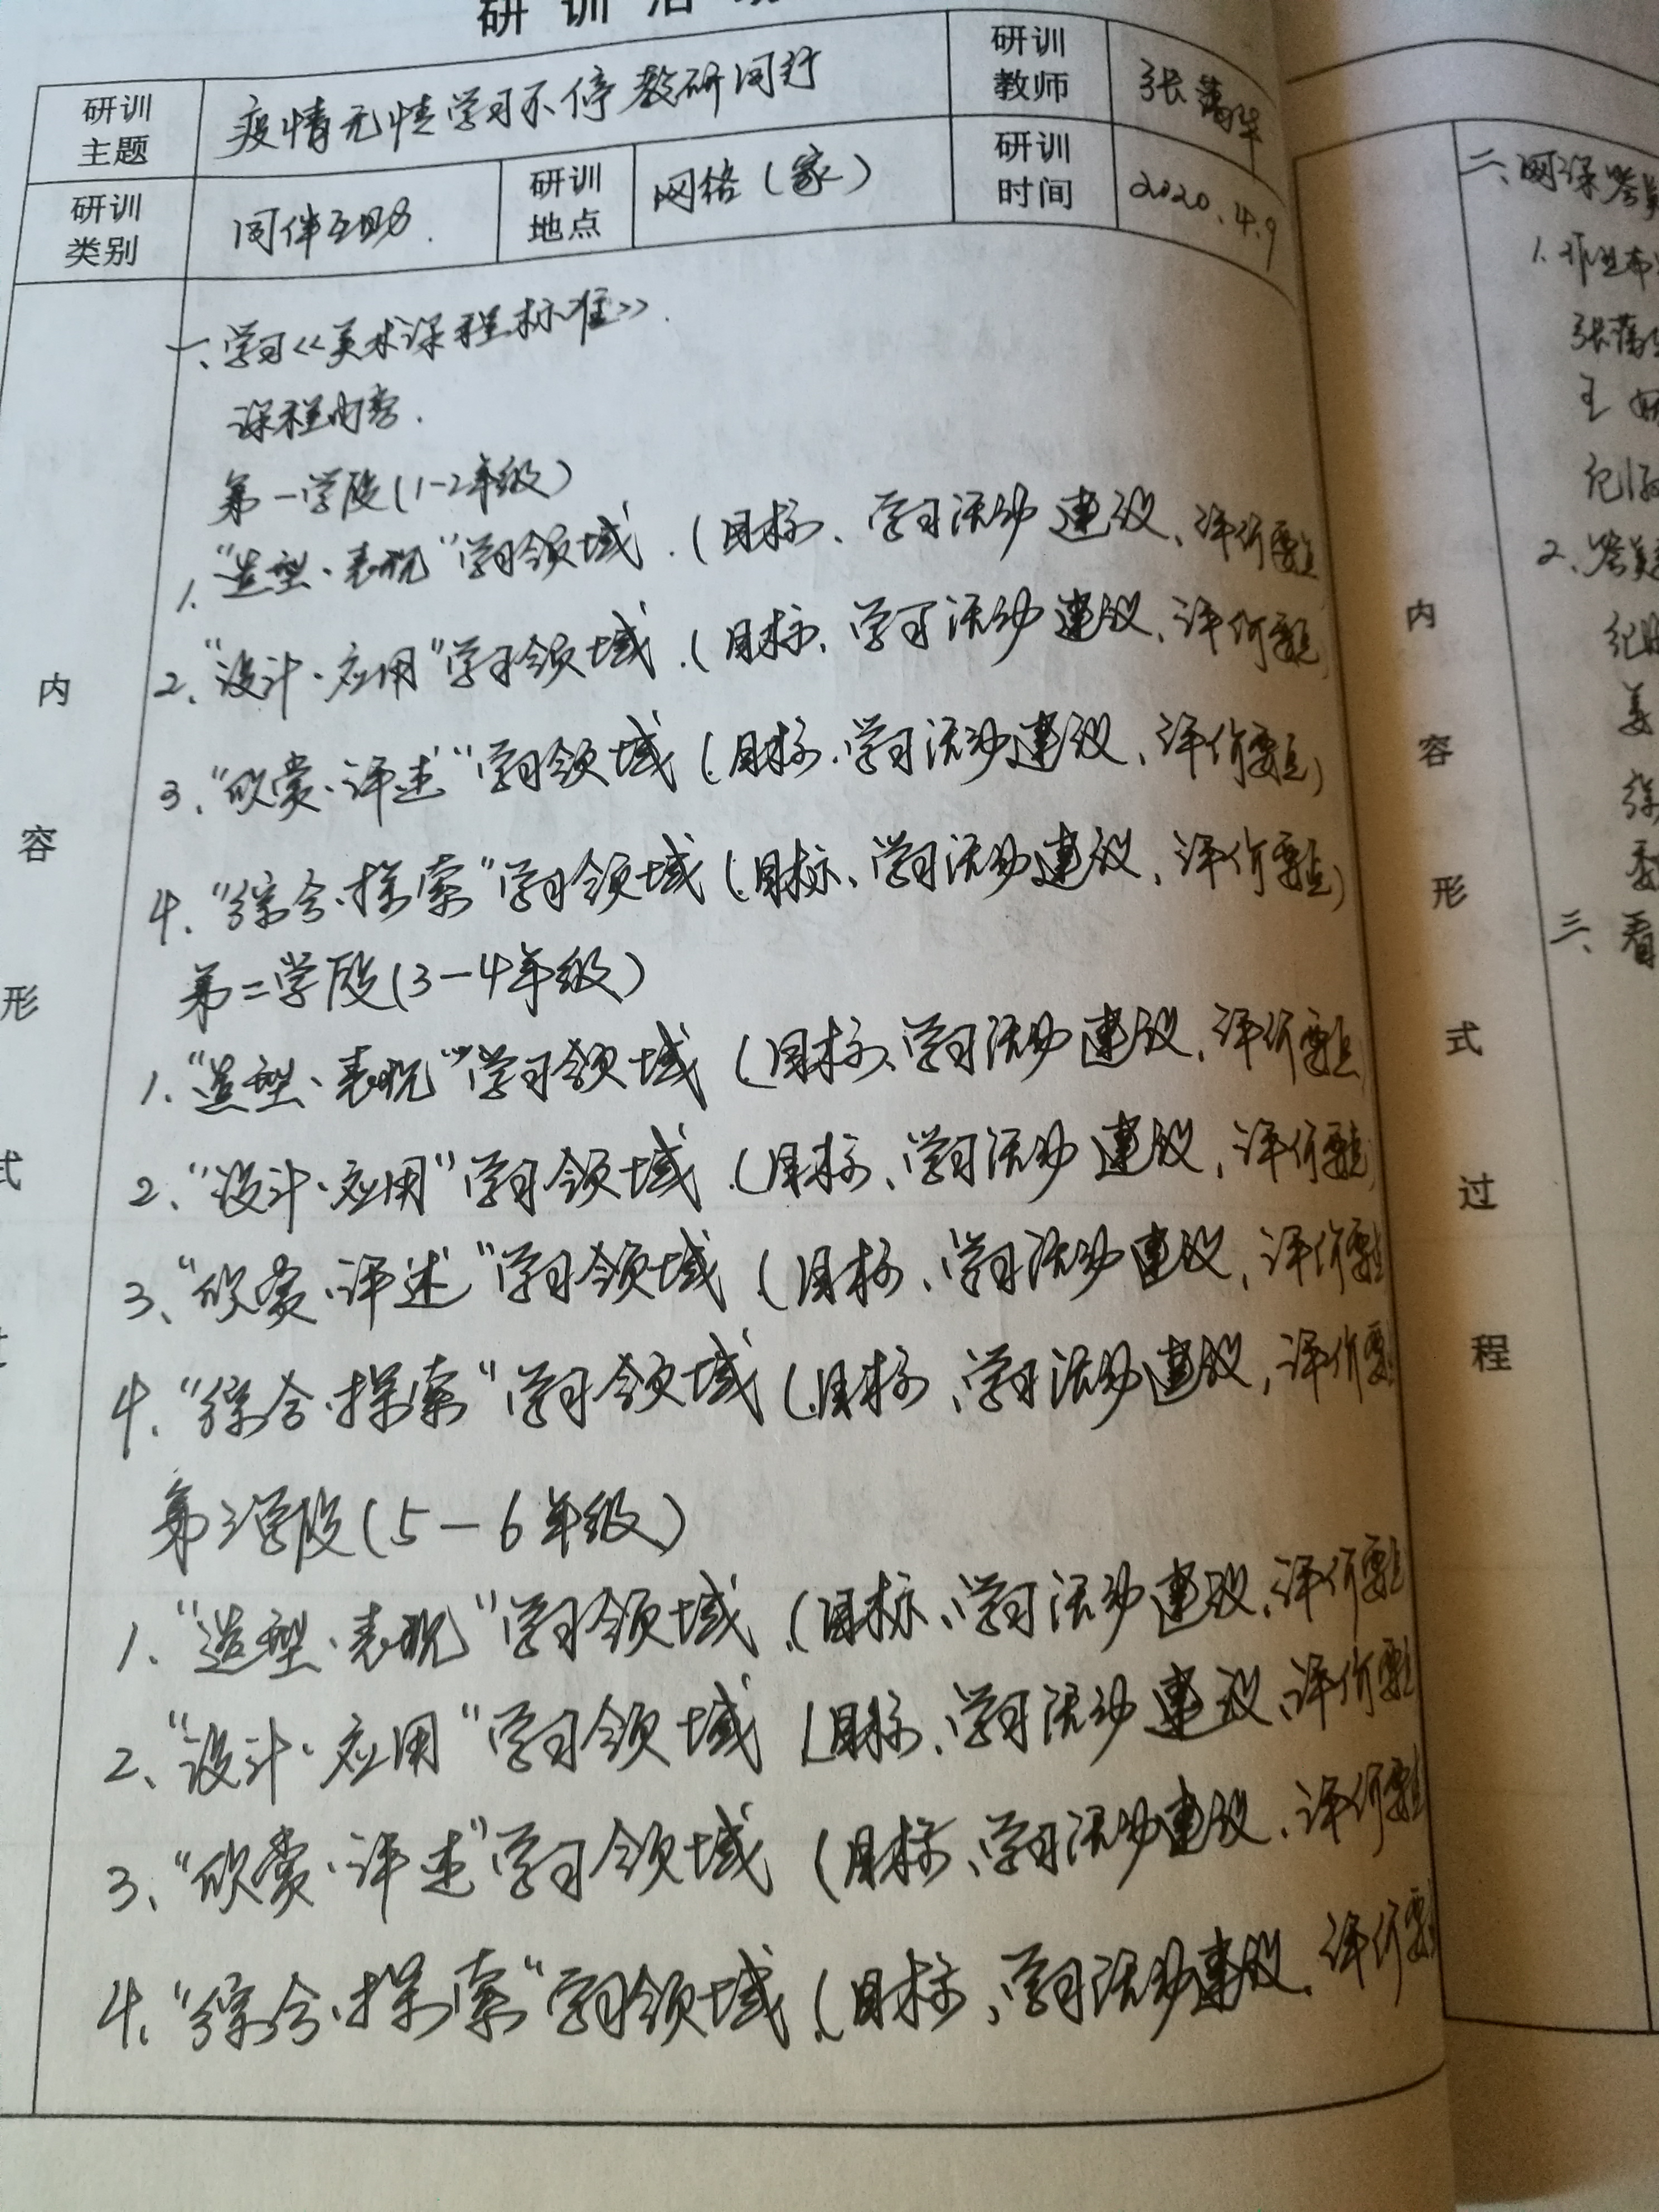 研训活动
研训主题 疫情无情学习不停教研同行 研训教师 张
研训类别 同伴互助. 研训地点 网络(家) 研训时间 2020.4.9
一、学习<<美术课程标准>>.
课程内容.
第一学段(1-2年级)
1."造型·表现"学习领域.(目标、学习活动建议、评价要点
2."设计·应用"学习领域.(目标、学习活动建议、评价要点
3."欣赏·评述"学习领域(目标、学习活动建议、评价要点)
4."综合·探索"学习领域(目标、学习活动建议、评价要点)
第二学段(3-4年级)
1."造型·表现"学习领域(目标、学习活动建议、评价要点
2、"设计·应用"学习领域.(目标、学习活动建议、评价要点
3、"欣赏·评述"学习领域(目标、学习活动建议、评价要点
4."综合·探索"学习领域(目标、学习活动建议、评价要
第三学段(5-6年级)
1、"造型·表现"学习领域(目标、学习活动建议、评价要点
2、"设计·应用"学习领域(目标、学习活动建议、评价要点
3、"欣赏·评述"学习领域(目标、学习活动建议、评价要点
4."综合·探索"学习领域(目标、学习活动建议、评价要
内
容
形
式
二、网课
1.
张
王
纪
2、
姜
三、看
内
容
形
式
过
程